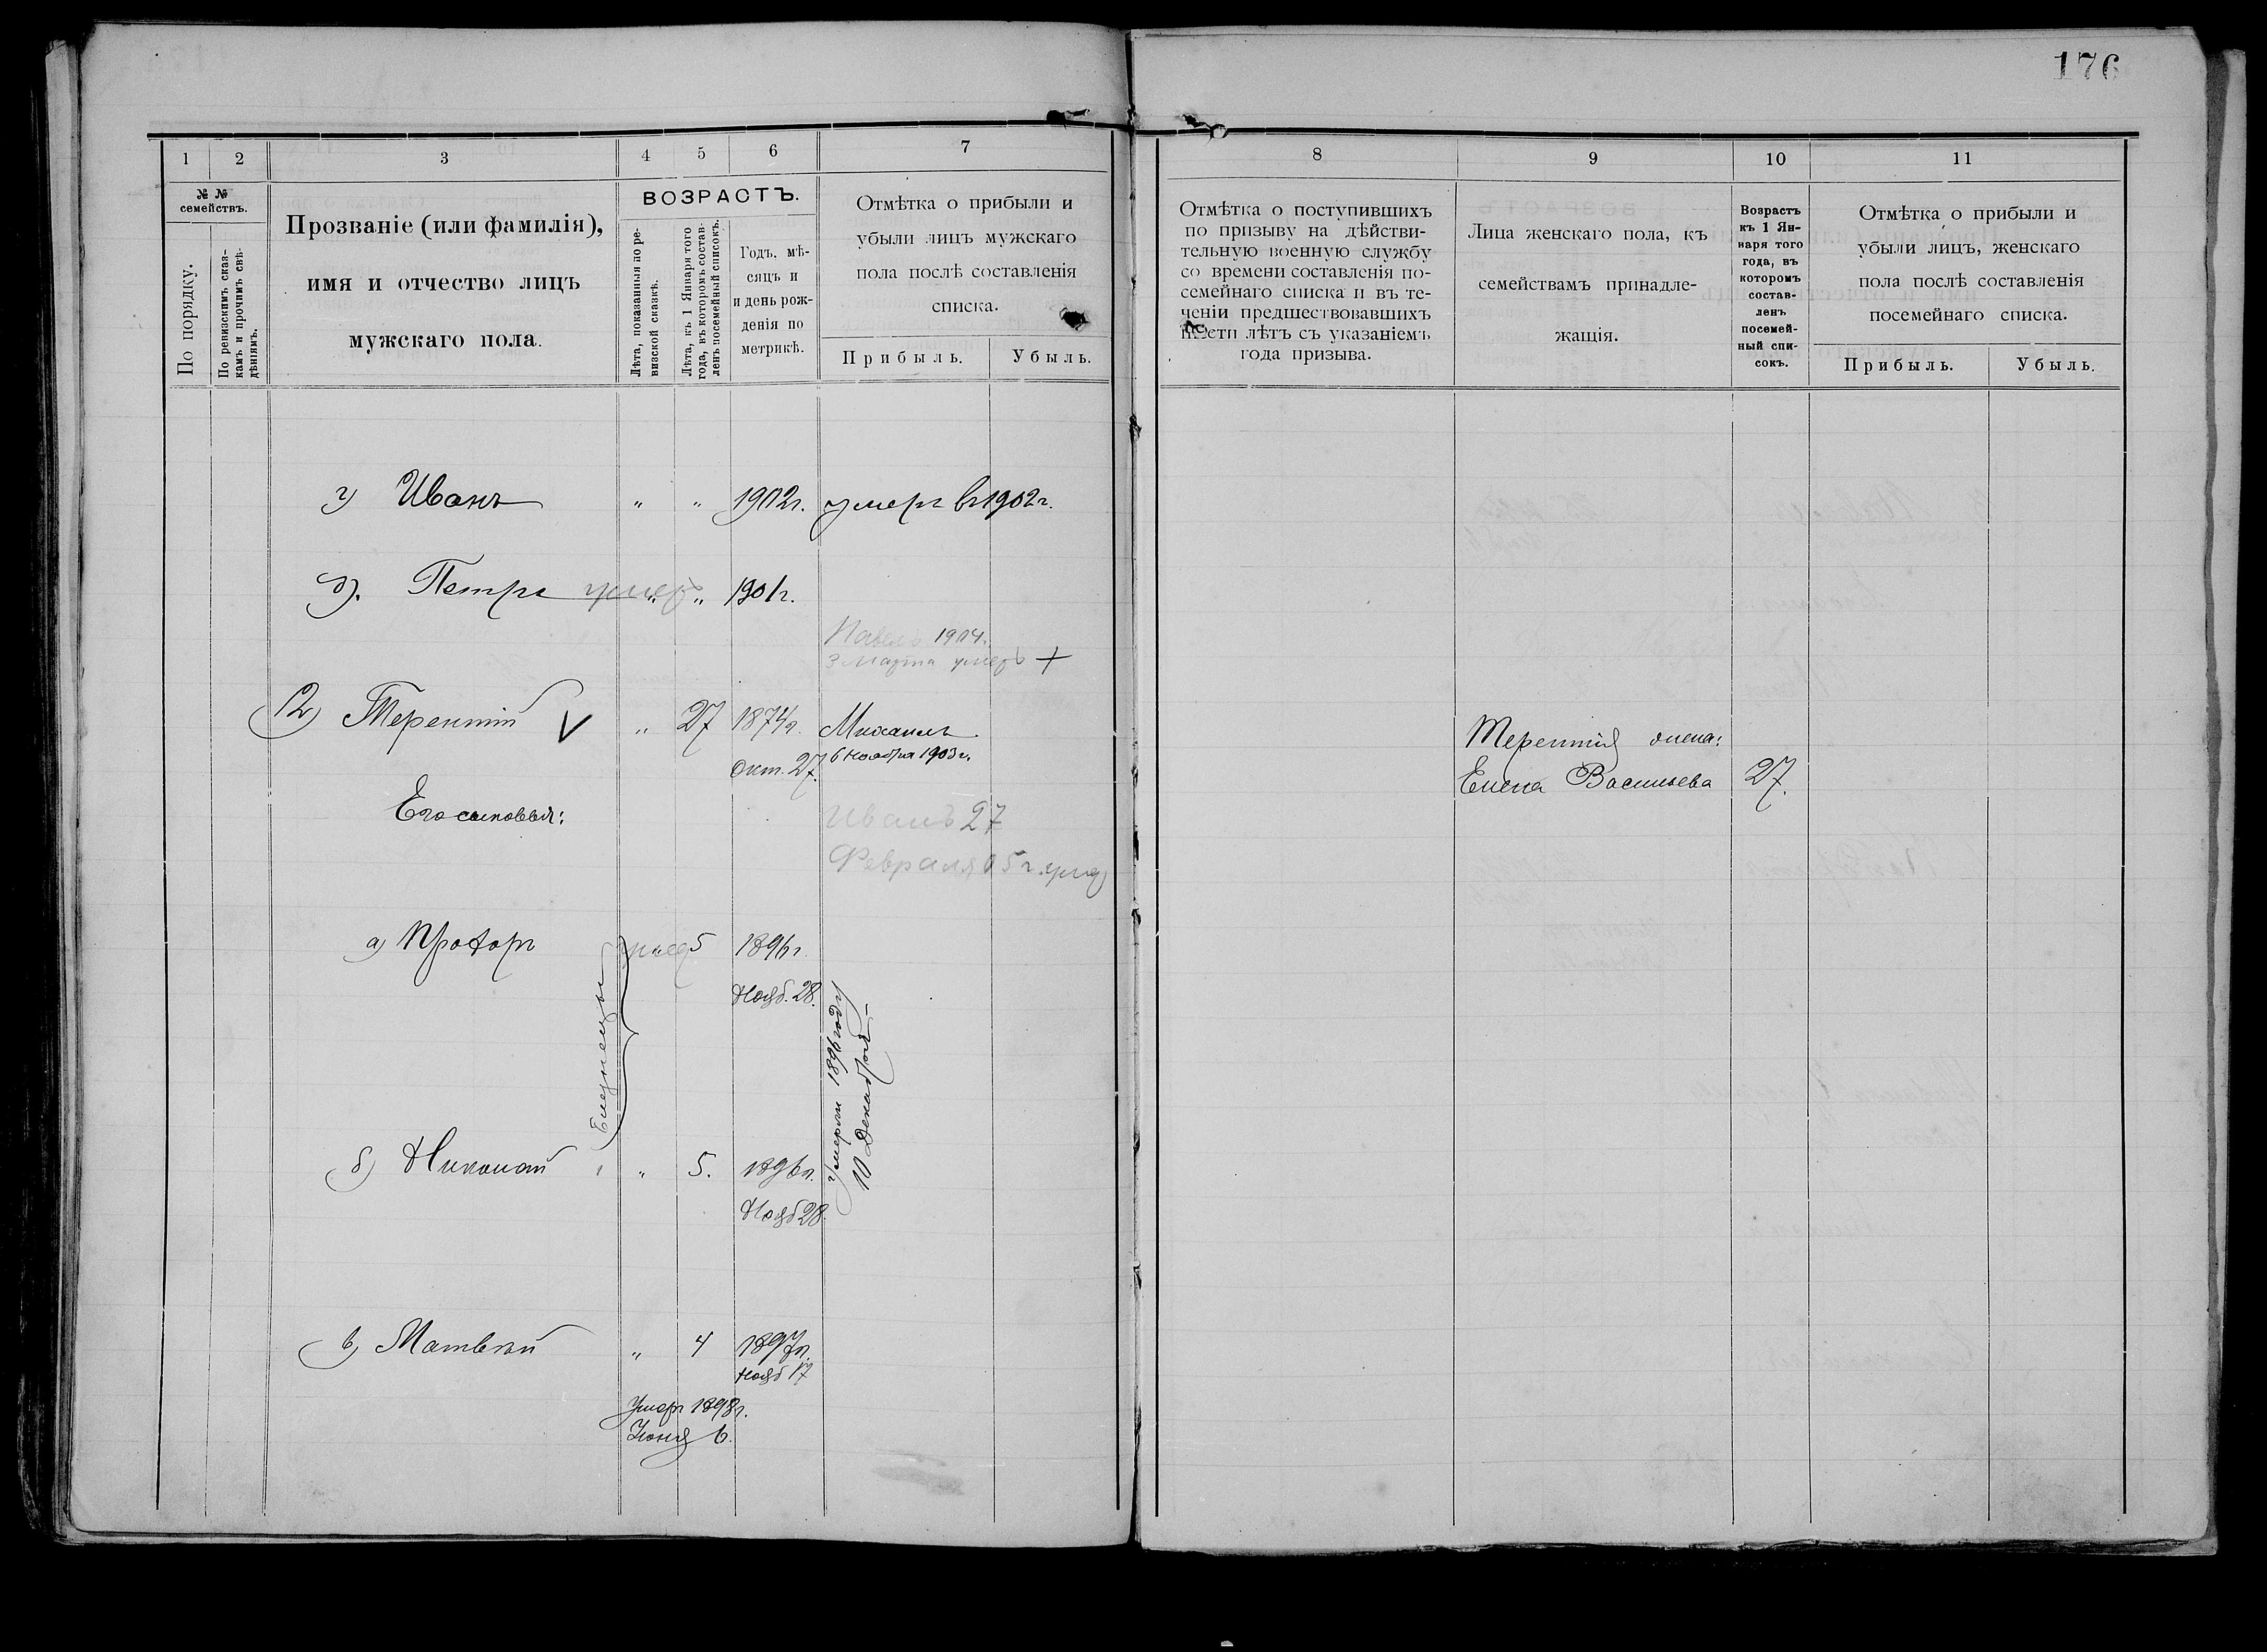 176
1 2 3 4 5 6 7
№ №
семействъ.
По порядку.
По ревизскимъ сказ-
камъ и прочимъ свѣ-
дѣніямъ.
Прозваніе (или фамилія),
имя и отчество лицъ
мужскаго пола.
ВОЗРАСТЪ.
Лѣта, показанныя по ре-
визской сказкѣ.
Лѣта, къ 1 Января того
года, въ которомъ состав-
ленъ посемейный списокъ.
Годъ, мѣ-
сяцъ и
и день рож-
денія по
метрикѣ.
Отмѣтка о прибыли и
убыли лицъ мужскаго
пола послѣ составленія
списка.
Прибыль. Убыль.
г) Иванъ " " 1902г. умеръ въ 1902г.
д). Петръ умеръ " " 1901г.
Павелъ 1904.
3 Марта умеръ +
12) Терентій V " 27 1874г. Михаилъ
Окт. 27. 6 Ноября 1903г.
Его сыновья:
Иванъ 27
Февраля 05г. умер
а) Прохоръ умер 5 1896г.
Нояб. 28.
Близнецы
Умерли 1896 году
10 Декабря
б) Николай " 5. 1896г.
Нояб 28.
в) Матвѣй " 4 1897г.
Нояб 17
Умеръ 1898г.
Іюня 6.
8 9 10 11
Отмѣтка о поступившихъ
по призыву на дѣйстви-
тельную военную службу
со времени составленія по-
семейнаго списка и въ те-
ченіи предшествовавшихъ
шести лѣтъ съ указаніемъ
года призыва.
Лица женскаго пола, къ
семействамъ принадле-
жащія.
Возрастъ
къ 1 Ян-
варя того
года, въ
которомъ
состав-
ленъ
посемей-
ный спи-
сокъ.
Отмѣтка о прибыли и
убыли лицъ, женскаго
пола послѣ составленія
посемейнаго списка.
Прибыль. Убыль.
Терентія жена:
Елена Васильева 27.